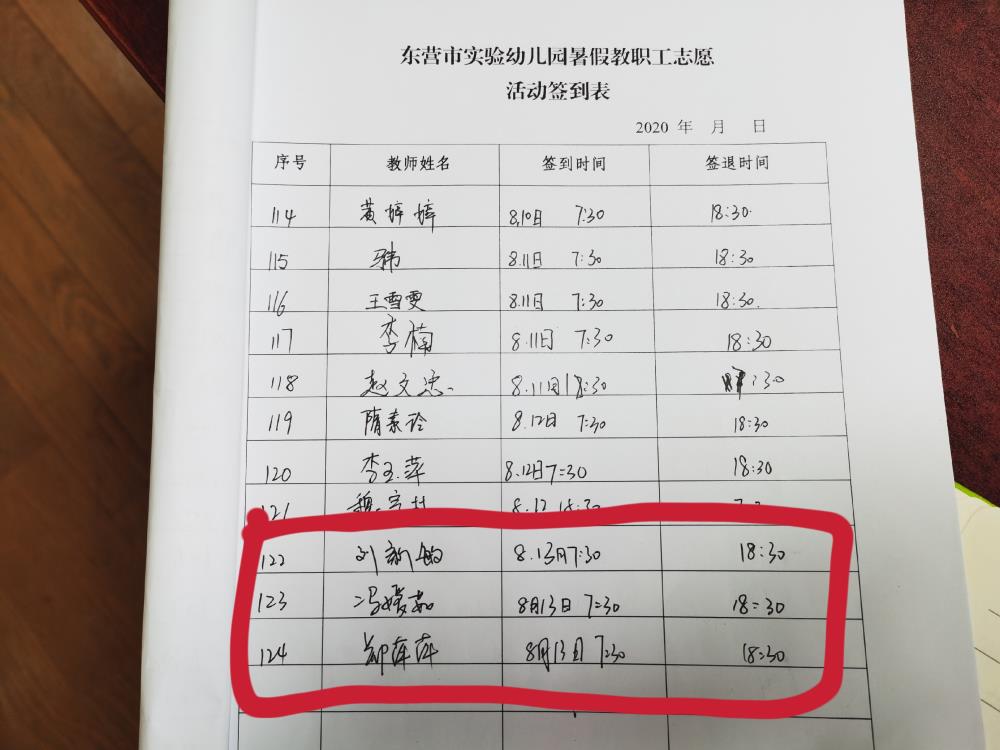 东营市实验幼儿园暑假教职工志愿
活动签到表
2020 年 月 日
序号 教师姓名 签到时间 签退时间
114 黄婷婷 8.10日 7:30 18:30
115 8.11日 7:30 18:30
116 王雪雯 8.11日 7:30 18:30
117 李楠 8.11日 7:30 18:30
118 赵文忠 8.11日 18:30 :30
119 隋素玲 8.12日 7:30 18:30
120 李玉萍 8.12日 7:30 18:30
121 8.12 18:30
122 刘新敏 8.13日 7:30 18:30
123 冯媛茹 8月13日 7:30 18:30
124 郑萍萍 8月13日 7:30 18:30